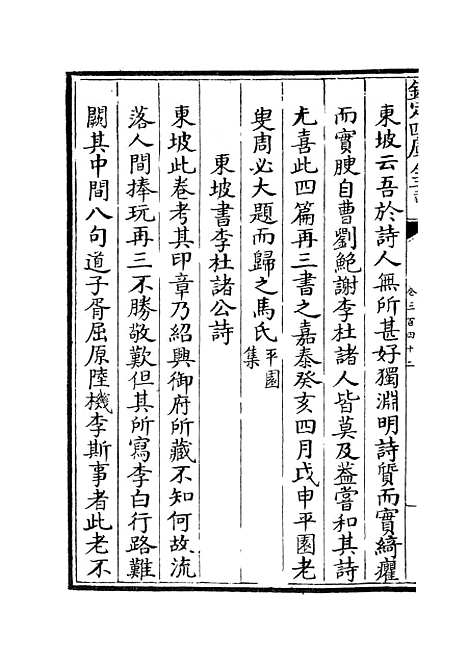 欽定四庫全書
卷三百四十二
東坡云吾於詩人無所甚好獨淵明詩質而實綺癯
而實腴自曹劉鮑謝李杜諸人皆莫及葢嘗和其詩
尤喜此四篇再三書之嘉泰癸亥四月戊申平園老
叟周必大題而歸之馬氏平園集
東坡書李杜諸公詩
東坡此卷考其印章乃紹興御府所藏不知何故流
落人間捧玩再三不勝敬歎但其所寫李白行路難
闕其中間八句道子胥屈原陸機李斯事者此老不